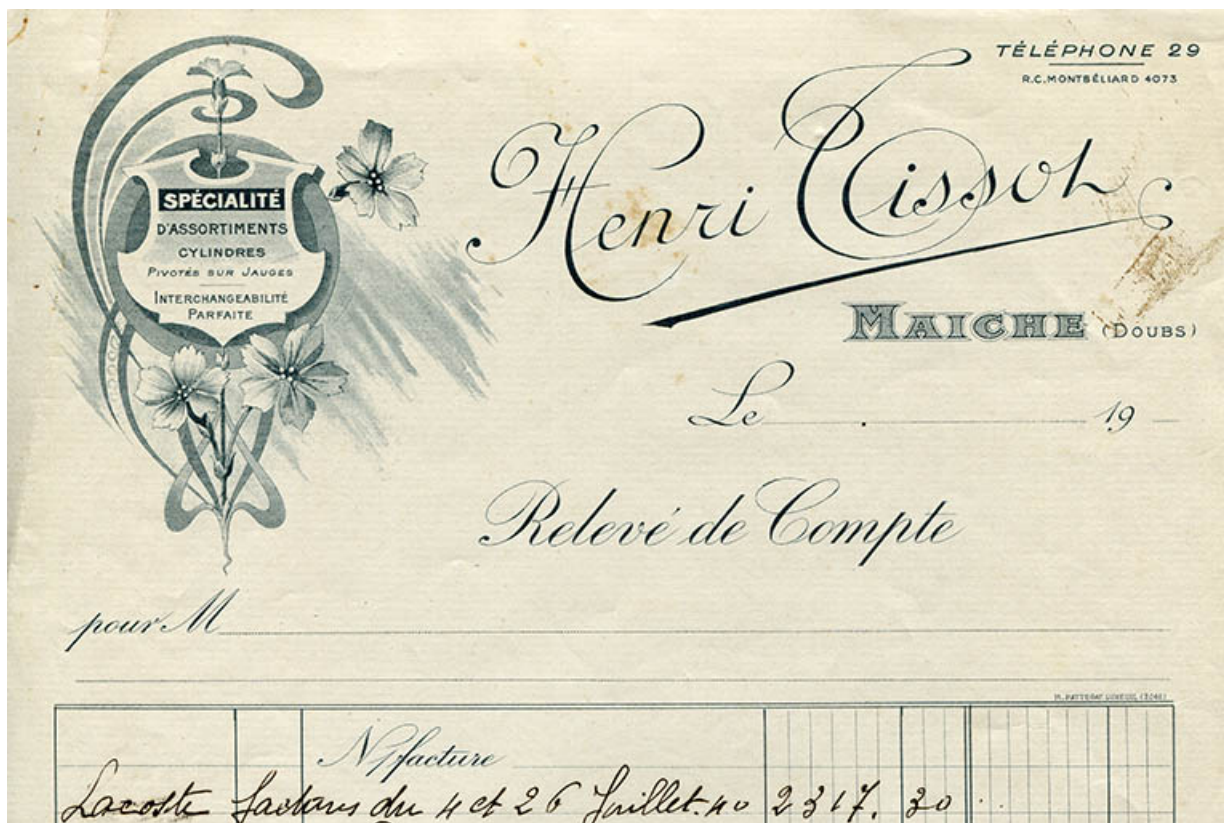 TÉLÉPHONE 29
R.C. MONTBÉLIARD 4073
Henri Tissot
SPÉCIALITÉ
D'ASSORTIMENTS
CYLINDRES
PIVOTÉS SUR JAUGES
INTERCHANGEABILITÉ
PARFAITE
MAICHE (DOUBS)
Le 19
Relevé de Compte
pour M
N/facture
Lacoste factures du 4 et 26 Juillet 40 2317. 30